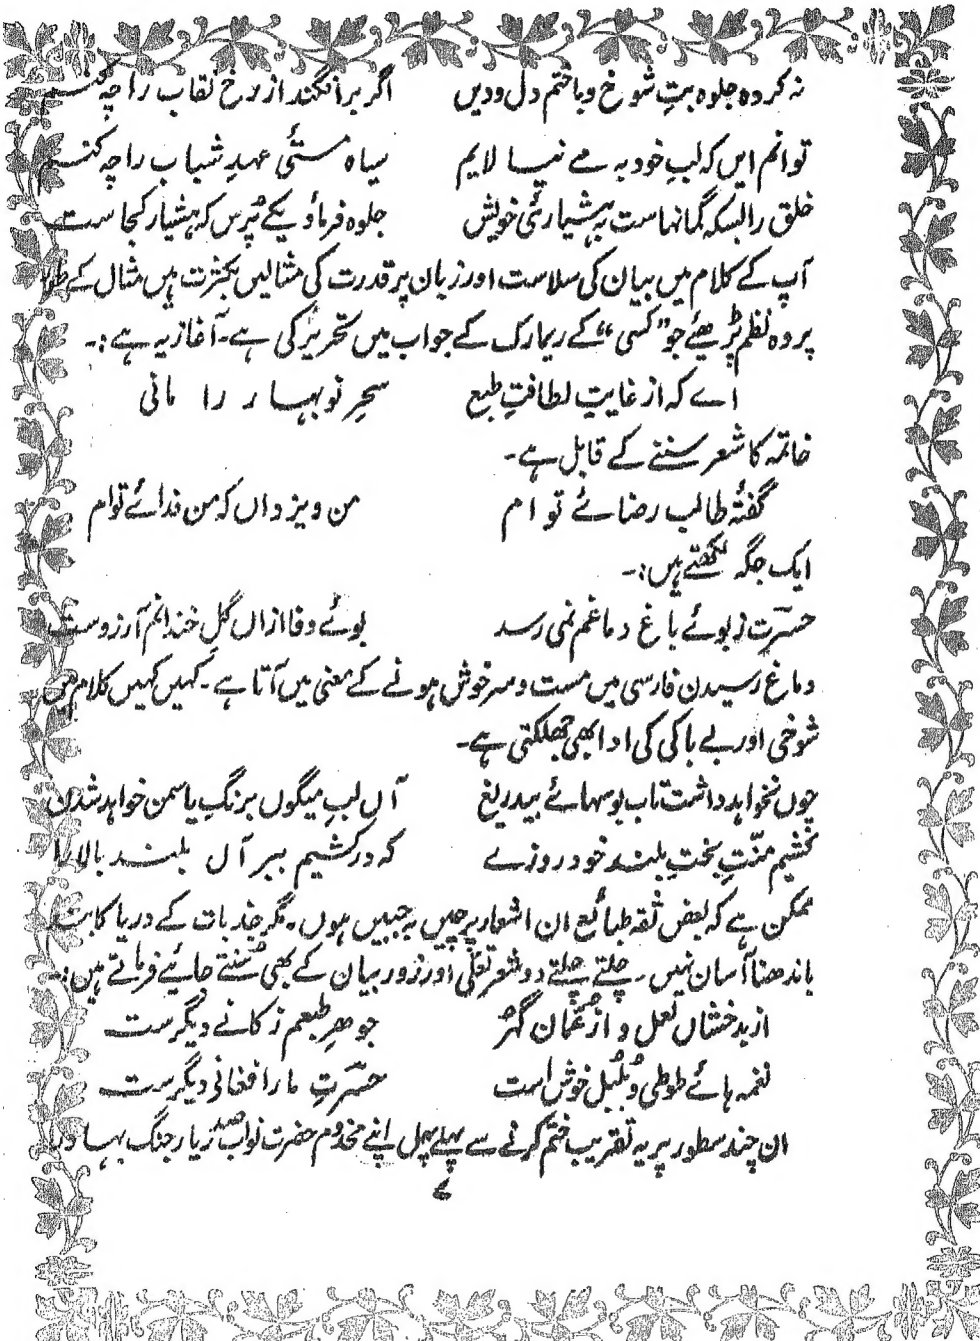 نہ کردہ جلوہ بتِ شوخ و باختم دل و دیں اگر برافگند از رخ نقاب را چہ کنم
توانم ایں کہ لبِ خود بہ مے نیالایم سیاہ مستیِ عہدِ شباب را چہ کنم
خلق را بسکہ گمانہاست بہ ہشیارئی خویش جلوہ فرما و یکے پُرس کہ ہشیار کجاست
آپ کے کلام میں بیان کی سلاست اور زبان پر قدرت کی مثالیں بکثرت ہیں مثال کے طور
پر وہ نظم پڑھئے جو "کسی" کے ریمارک کے جواب میں تحریر کی ہے۔ آغاز یہ ہے:۔
اے کہ از غایتِ لطافتِ طبع سحرِ نوبہار را مانی
خاتمہ کا شعر سننے کے قابل ہے۔
گفتۂ طالب رضائے تو ام من و یزداں کہ من فدائے توام
ایک جگہ لکھتے ہیں:۔
حسرتؔ ز بوئے باغ دماغم نمی رسد بوئے وفا ازاں گلِ خندانم آرزوست
دماغ رسیدن فارسی میں مست و سرخوش ہونے کے معنی میں آتا ہے۔ کہیں کہیں کلام میں
شوخی اور بے باکی کی ادا بھی جھلکتی ہے۔
چوں نخواہد داشت تاب بوسہائے بیدریغ آں لبِ میگوں برنگِ یاسمن خواہد شدن
کشیم منّتِ بختِ بلند خود روزے کہ درکشیم ببر آں بلند بالا را
ممکن ہے کہ بعض ثقہ طبائع ان اشعار پر چیں بہ جبیں ہوں۔ مگر جذبات کے دریا کا بند
باندھنا آسان نہیں۔ چلتے چلتے دو شعر تعلّی اور زور بیان کے بھی سُنتے جائیے فرماتے ہیں:۔
از بدخشاں لعل و از عُمّان گہر جوہرِ طبعم ز کانے دیگرست
نغمہ ہائے طوطی و بُلبل خوش است حسرتِؔ ما را فغانی دیگرست
ان چند سطور پر یہ تقریب ختم کرنے سے پہلے پہل اپنے مخدوم حضرت نواب صدر یار جنگ بہادر
ے